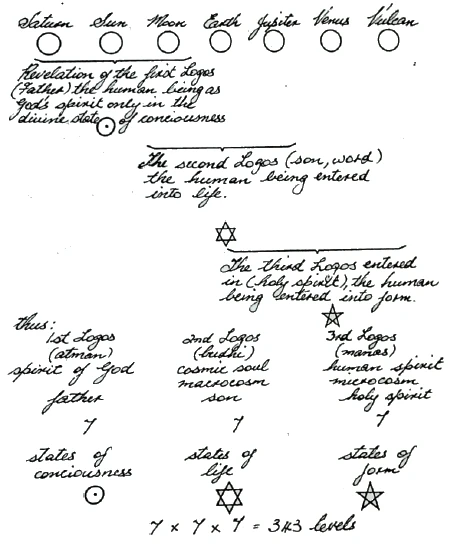 Saturn Sun Moon Earth Jupiter Venus Vulcan
Revelation of the first Logos
(Father) the human being as
God's spirit only in the
divine state of conciousness
The second Logos (son, word)
the human being entered
into life.
The third Logos entered
in (holy spirit), the human
being entered into form.
thus:
1st Logos
(atman)
spirit of God
father
7
states of
conciousness
2nd Logos
(budhi)
cosmic soul
macrocosm
son
7
states of
life
3rd Logos
(manas)
human spirit
microcosm
holy spirit
7
states of
form
7 x 7 x 7 = 343 levels